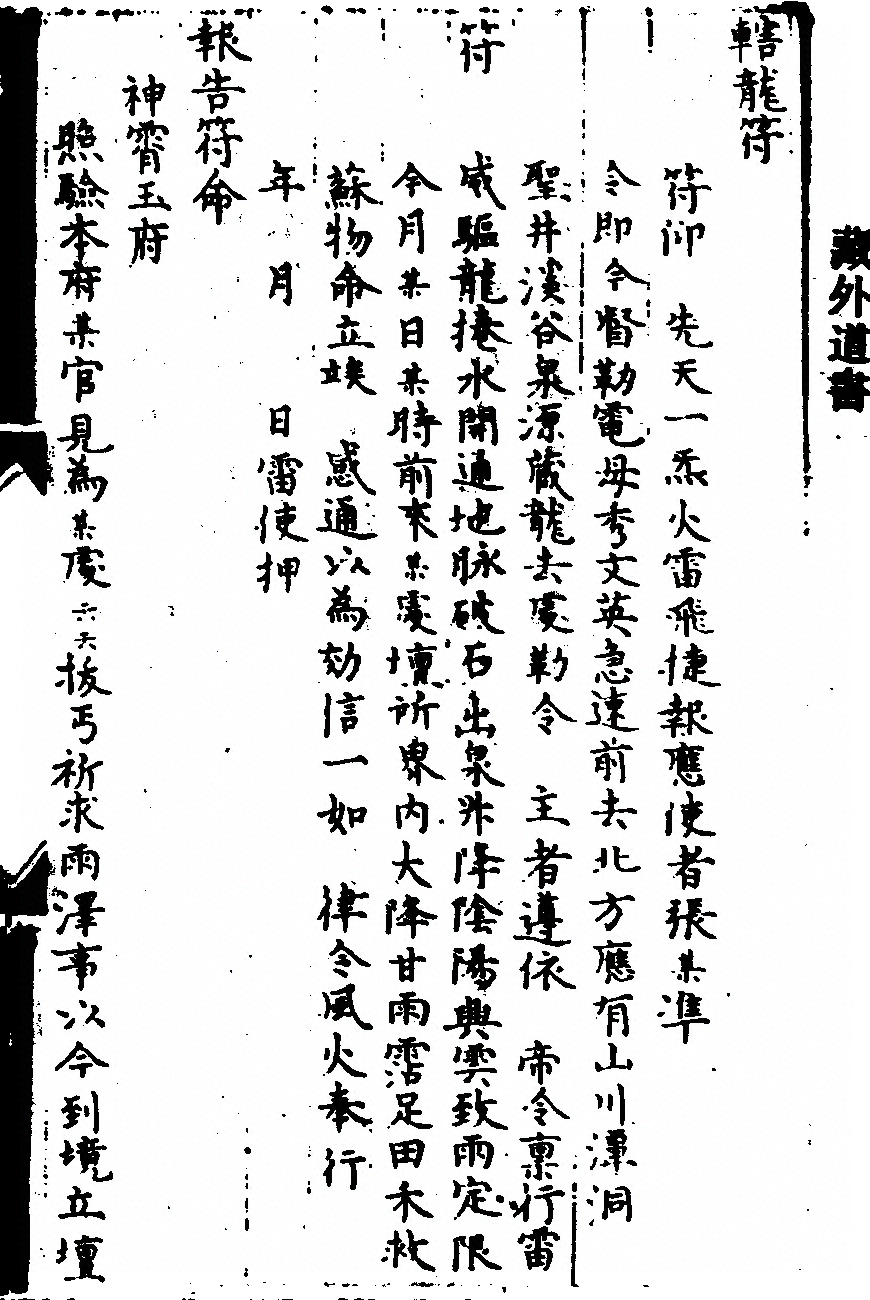 藏外道書
轄龍符
符仰　先天一炁火雷飛捷報應使者張某準
令即今督勒電母秀文英急速前去北方應有山川潭洞
聖井溪谷泉源藏龍去處勒令　主者遵依　帝令稟行雷
符　威驅龍捲水開通地脉破石出泉升降陰陽興雲致雨定限
今月某日某時前來某處壇所界内大降甘雨霑足田禾救
蘇物命立竢　感通以為効信一如　律令風火奉行
年　月　　日雷使押
報告符命
神霄玉府
照驗本府某官見為某處云云投丐祈求雨澤事以今到境立壇